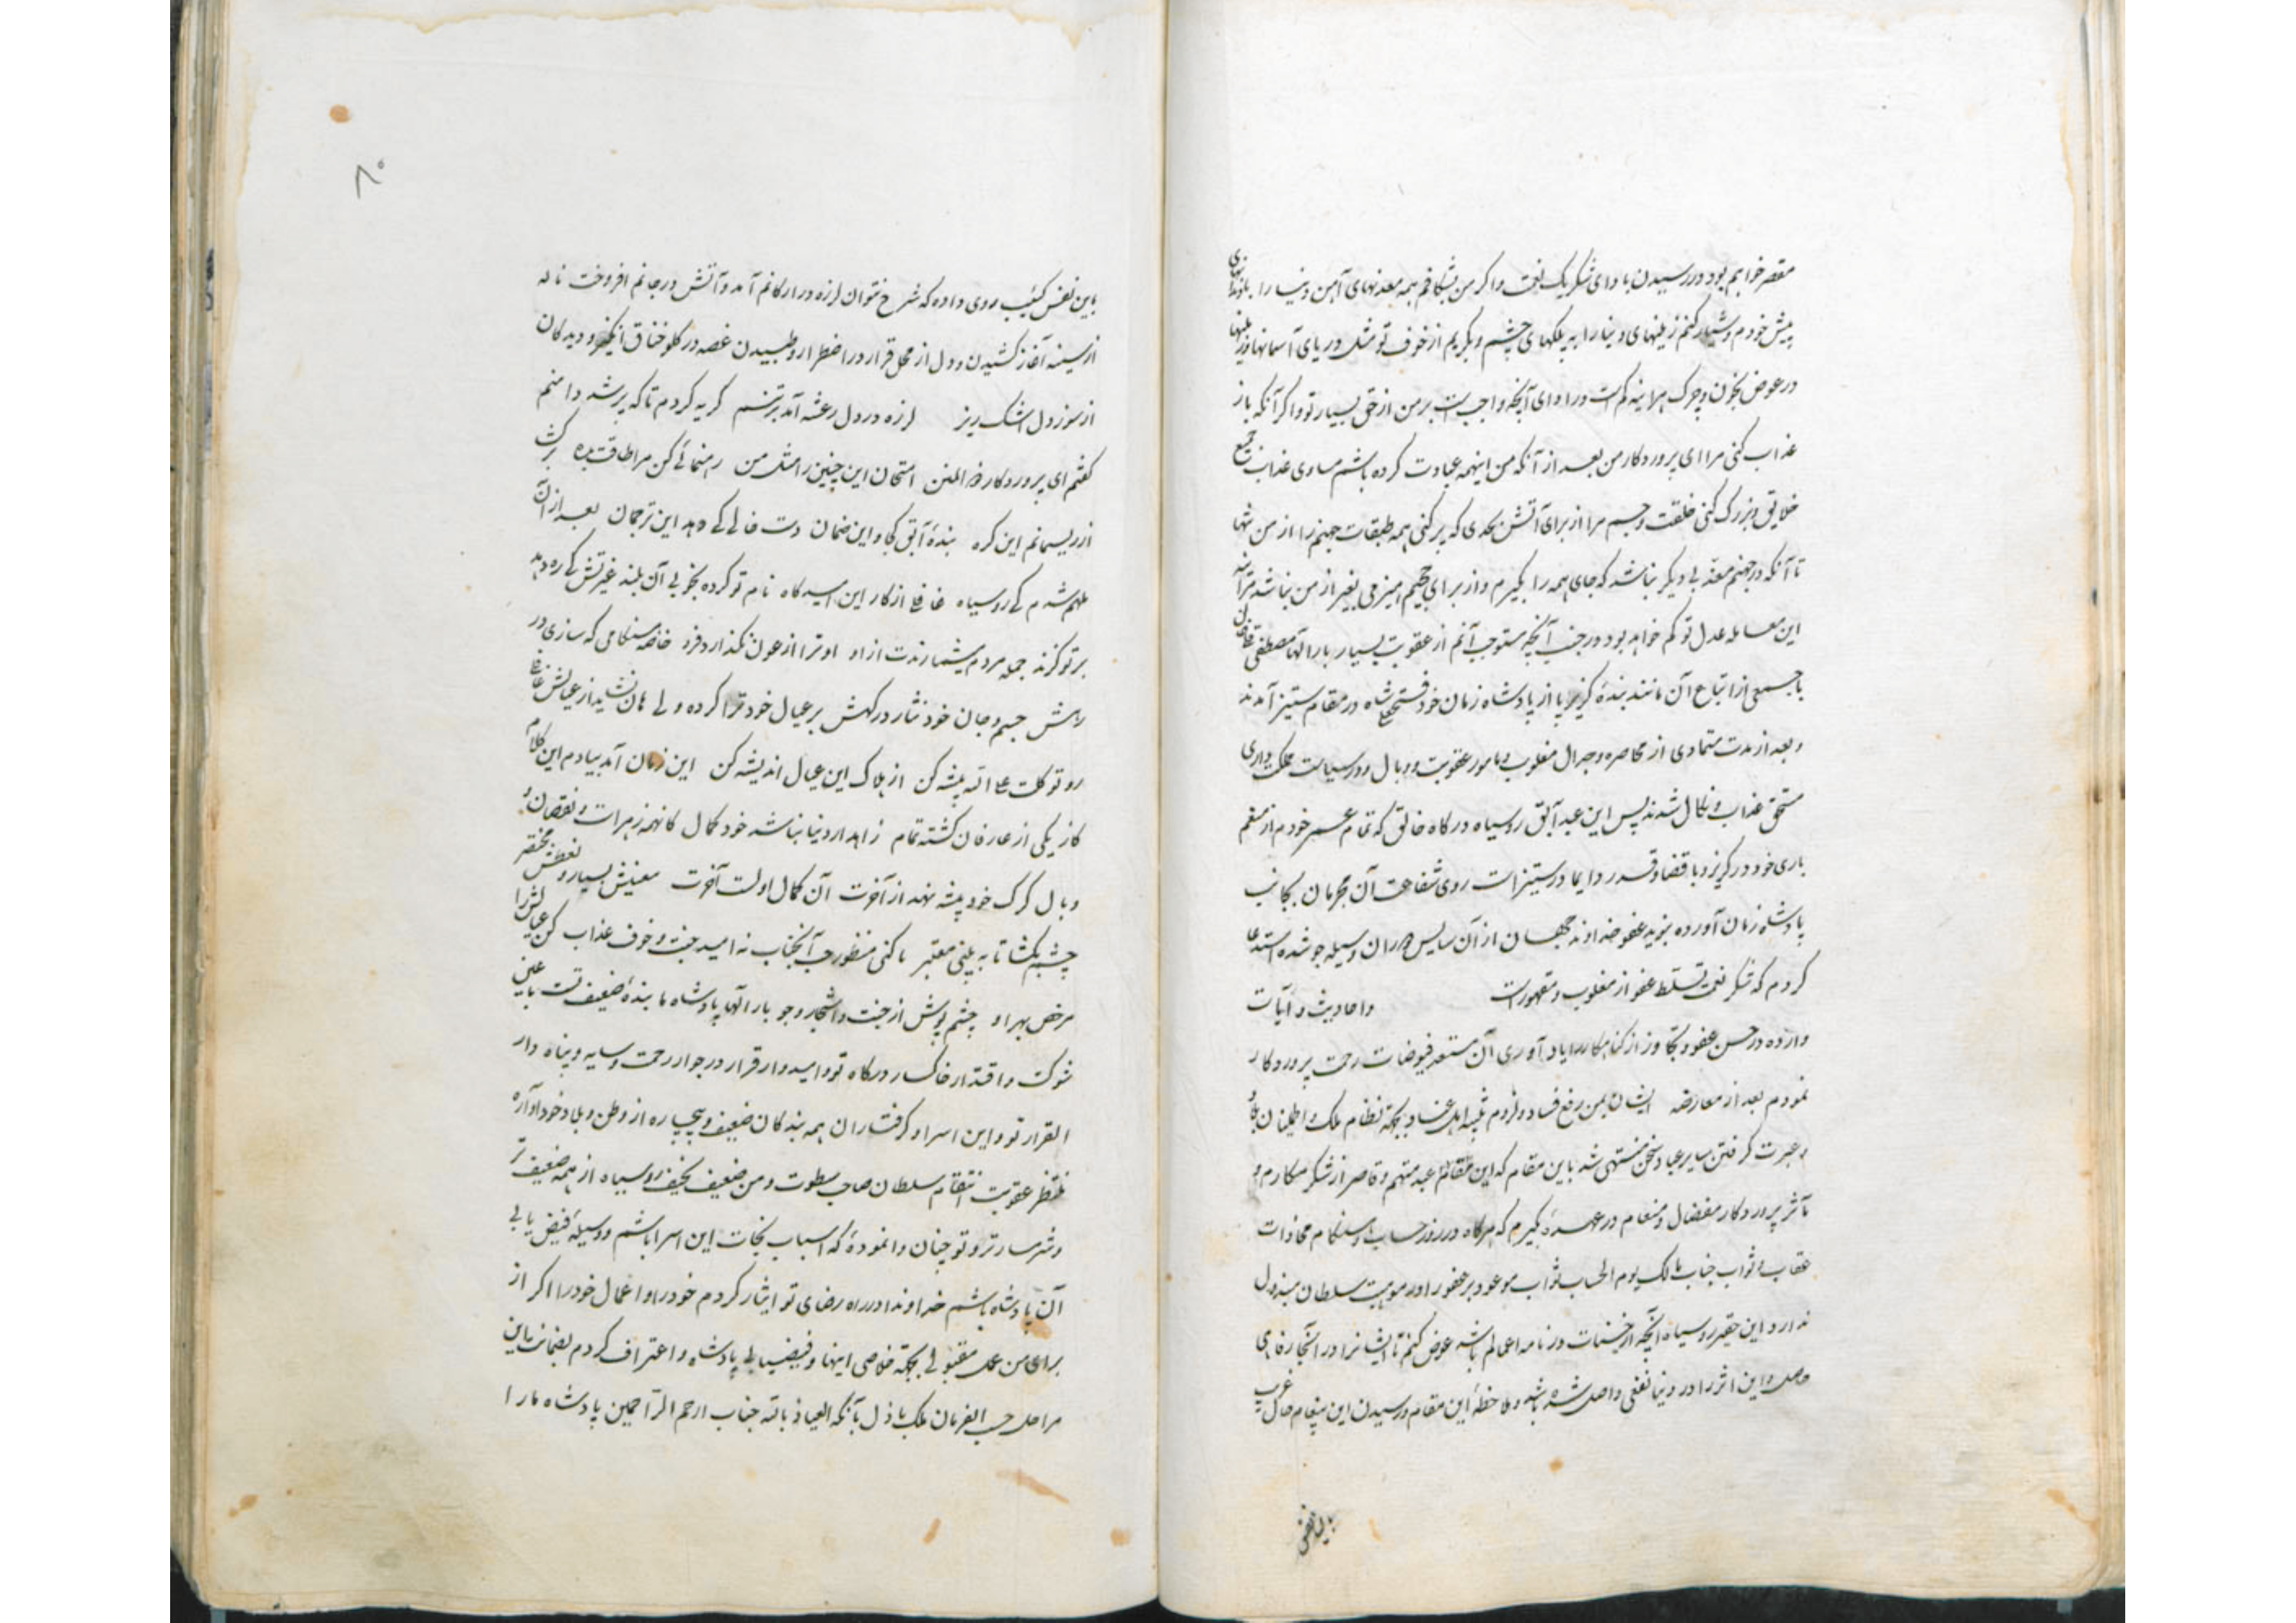 مقصر خواهم بود در رسیدن بادای شکر یک نعمت و اگر من بشکافم همه معدنهای آهن دنیا را
پیش خودم و شیار کنم زمینهای دنیا را به پلکهای چشم و بگریم از خوف تو مثل دریای آسمانها و زمینها
در عوض بخون و چرک هر اینه کم است در ادای آنچه واجب است بر من از حق بسیار تو و اگر آنکه باز
عذاب کنی مرا ای پروردکار من بعد از آنکه من اینهمه عبادت کرده باشم مساوی عذاب جمیع
خلایق و بزرگ کنی خلقت و جسم مرا از برای آتش بحدی که پر کنی همه طبقات جهنم را از من تنها
تا آنکه در جهنم معذّبی دیگر نباشد که جای همه را بگیرم و از برای جحیم هیزمی بغیر از من نباشد هر آینه
این معامله عدل تو کم خواهد بود در جنب آنچه مستوجب آنم از عقوبت بسیار بار الها مصطفی قلیخان
با جمعی از اتباع آن مانند بندهٔ گریز پا از پادشاه زمان خود فتحعلیشاه در مقام ستیز آمدند
و بعد از مدت متمادی از محاصره و جدال مغلوب و مامور عقوبت و وبال و در سیاست ملک داری
مستحق عذاب و نکال شدند پس این عبد آبق روسیاه درکاه خالق که تمام عمر خودم از منعم
باری خود در گریز و با قضا و قدر دایما در ستیز است روی شفاعت آن مجرمان بجانب
پادشاه زمان آورده بنوید عفو خداوند جهان از آن سایس دوران وسیله جو شده استدعا
کردم که شکر نعمت تسلط عفو از مغلوب و مقهور است و احادیث و آیات
وارده در حسن عفو و تجاوز از کناهکار را یاد آوری آن مستعد فیوضات رحمت پروردکار
نمودم بعد از معارضه ایشان بمن رفع فساد و لزوم تنبیه اهل عناد و بجهة نظام ملک و اطمینان بلاد
و عبرت گرفتن سایر عباد سخن منتهی شد باین مقام که این مقام عبد متهم و قاصر از شکر مکارم و
مآثر پروردکار مفضال و منعام در عهده بگیرم که هرکاه در روز حساب و هنکام مجازات
عقاب و ثواب جناب مالک یوم الحساب ثواب موعود بر عفو را در موهبت سلطان مبذول
ندارد این حقیر روسیاه آنچه از حسنات در نامه اعمالم باشد عوض کنم تا ایشانرا در آنجا رفاهی
حاصل و این اثر را در دنیا نفعی واصل شده باشد و ملاحظهٔ این مقام و رسیدن این پیغام حال غریب
باین نفس
۸۰
باین نفس کئیب روی داده که شرح نتوان لرزه در ارکانم آمد و آتش در جانم افروخت ناله
از سینه آغاز کشیدن و دل از محل قرار در اضطرار و طپیدن غصه در کلو خناق انگیز و دیدکان
از سوز دل اشک ریز لرزه در دل رعشه آمد بر تنم کریه کردم تا که پر شد دامنم
کفتم ای پروردکار ذو المنن امتحان این چنین را مثل من رهنمائی کن مرا طاقت بده برکشا
از ریسمانم این کره بندهٔ آبق کجا و این ضمان دست خالی کی دهد این ترجمان بعد از آن
ملهم شدم کی روسیاه غافلی از کار این امیدکاه نام تو کرده بخوبی آن بلند غیر تش کی ره دهد
بر تو کزند جمله مردم میشمارندت از او او ترا از عون نکذارد فرد خاصه هنکامی که سازی در
رهش جسم و جان خود نثار درکهش بر عیال خود ترا کرده ولی هان نشاید از عیالش غافلی
رو توکلت علی الله پیشه کن از هلاک این عیال اندیشه کن این زمان آمد بیادم این کلام
کاز یکی از عارفان کشته تمام زاهد ار دنیا نباشد خود کمال کانهمه زهر است و نقصان و
وبال کرک خود پیشه نهد از آخرت آن کمال اولست آخرت معنیش بسیار و لفظش مختصر
چشم بکشا تا به بینی معتبر تا کنی منظور حب آنجناب نه امید جنت و خوف عذاب کن عیالش را
مرخص بهر او چشم پوش از جنت و اشجار و جو بار الها پادشاه ما بندهٔ ضعیف تست باین
شوکت و اقتدار خاکسار درکاه تو و امیدوار قرار در جوار رحمت و سایه و پناه دار
القرار تو و این اسرا و کرفتاران همه بندکان ضعیف و بیچاره از وطن و بلاد خود آواره
منتظر عقوبت انتقام سلطان صاحب سطوت و من ضعیف نحیف روسیاه از همه ضعیف تر
و شرمسار تر و تو چنان وا نمودهٔ که اسباب نجات این اسرا باشم و وسیلهٔ فیض یابی
آن پادشاه باشم خداوندا در راه رضای تو ایثار کردم خود را و اعمال خود را اکر از
برای من عمل مقبولی بجهة خلاصی اینها و فیضیابی پادشاه و اعتراف کردم بضمانت باین
مراحل حسب الفرمان ملک باذل بآنکه العیاذ بالله جناب ارحم الرّاحمین پادشاه ما را